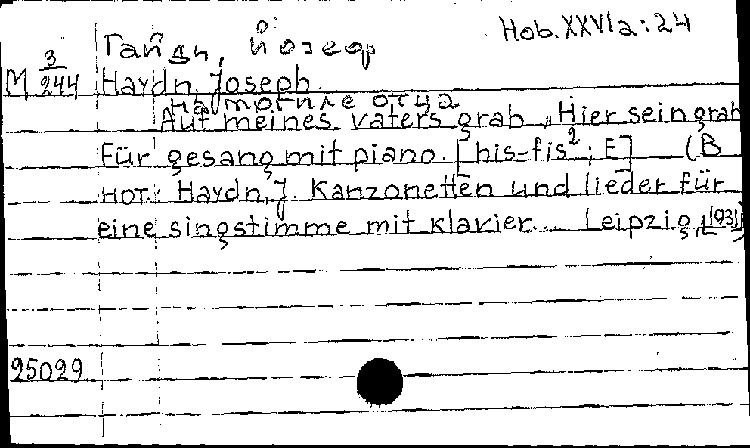 Hob. XXVIa:24
Гайдн, Йозеф
M 3/244 Haydn, Joseph
на могиле отца
Auf meines vaters grab „Hier sein grab
Für gesang mit piano. [his-fis²; E] (В
нот.: Haydn, J. Kanzonetten und lieder für
eine singstimme mit klavier... Leipzig, [1931]
25029